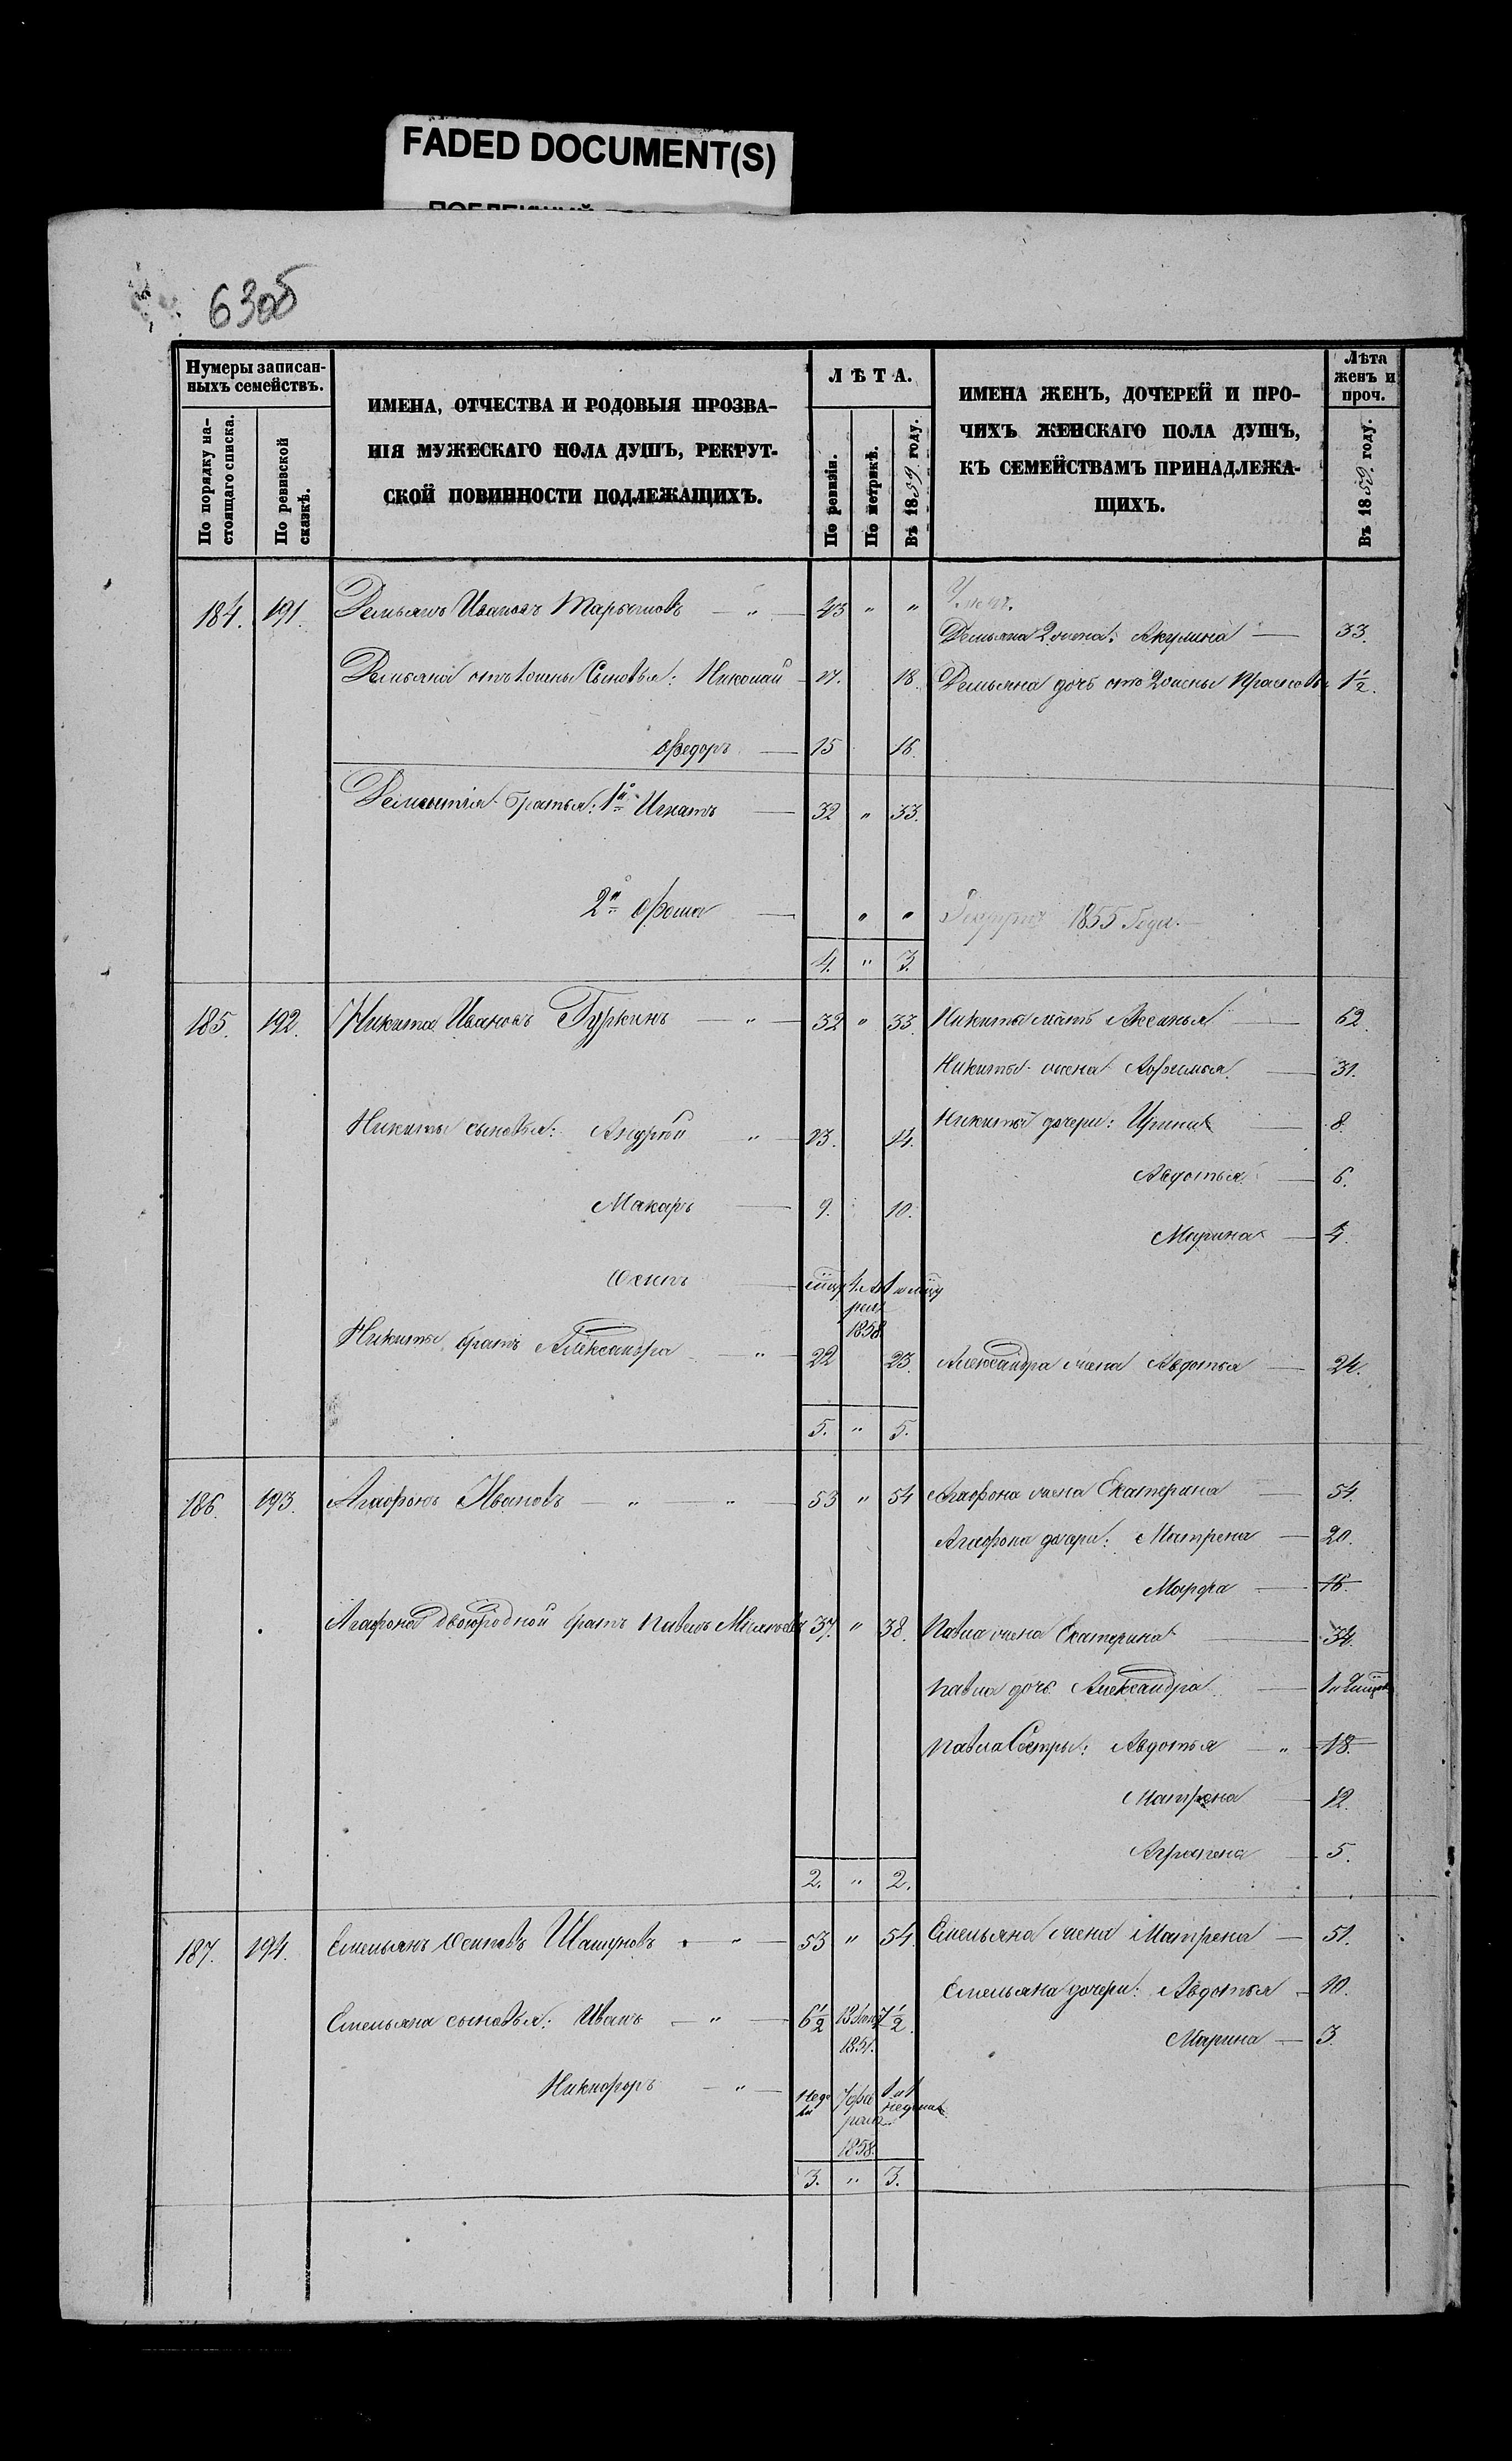 FADED DOCUMENT(S)
63об
Нумеры записан-
ныхъ семействъ.
По порядку на-
стоящаго списка.
По ревизской
сказкѣ.
ИМЕНА, ОТЧЕСТВА И РОДОВЫЯ ПРОЗВА-
НІЯ МУЖЕСКАГО ПОЛА ДУШЪ, РЕКРУТ-
СКОЙ ПОВИННОСТИ ПОДЛЕЖАЩИХЪ.
ЛѢТА.
По ревизіи.
По метрикѣ.
Въ 1859 году.
ИМЕНА ЖЕНЪ, ДОЧЕРЕЙ И ПРО-
ЧИХЪ ЖЕНСКАГО ПОЛА ДУШЪ,
КЪ СЕМЕЙСТВАМЪ ПРИНАДЛЕЖА-
ЩИХЪ.
Лѣта
женъ и
проч.
Въ 1859 году.
184. 191. Демьянъ Ивановъ — " — 43 " "
Демьяна 2 жена: Акулина — 33.
Демьяна отъ 1 жены Сыновья: Николай 17. 18. Демьяна дочь отъ 2 жены 1½.
Федоръ — 15 16.
братья: 1й Игнатъ — 32 " 33.
2й Фома — " " Рекрутъ 1855 Года.
4. " 3.
185. 192. Никита Ивановъ Гуркинъ — " — 32 " 33. Никиты мать Аксинья — 62.
Никиты жена Афимья — 31.
Никиты сыновья: Андрей " — 13. 14. Никиты дочери: Ирина — 8.
Авдотья — 6.
Макаръ — 9. 10.
Марина — 4.
Осипъ — 1858
Никиты братъ Александра — " — 22 23. Александра жена Авдотья — 24.
5. " 5.
186. 193. Агафонъ Ивановъ — " " — 53 " 54 Агафона жена Екатерина — 54.
Агафона дочери: Матрена — 20.
Марфа — 16.
Агафона двоюродной братъ Павелъ 37. " 38. Павла жена Екатерина — 34.
Павла дочь Александра —
Павла Сестры: Авдотья — " 18.
Матрена — 12.
Аграпена — 5.
2. " 2.
187. 194. Емельянъ Осиповъ Шашуновъ — " — 53 " 54. Емельяна жена Матрена — 51.
Емельяна дочери: Авдотья — 10.
Емельяна сыновья: Иванъ — " — 6½ 1851. 7½.
Марина — 3.
Никифоръ — " — 7 фев
раля
1858.
3. " 3.